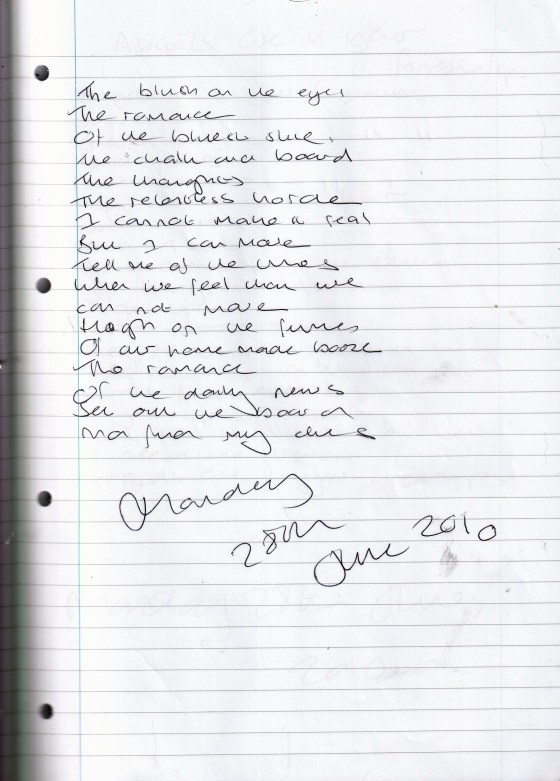 The blush on the eyes
The romance
Of the
the chalk and board
The thoughts
The relentless horde
I cannot make a real
But I can move
Tell me of the times
When we feel when we
can not move
on the fumes
Of our home made booze
The romance
Of the daily news
Set out the board
find my clues
Monday
28th
June 2010